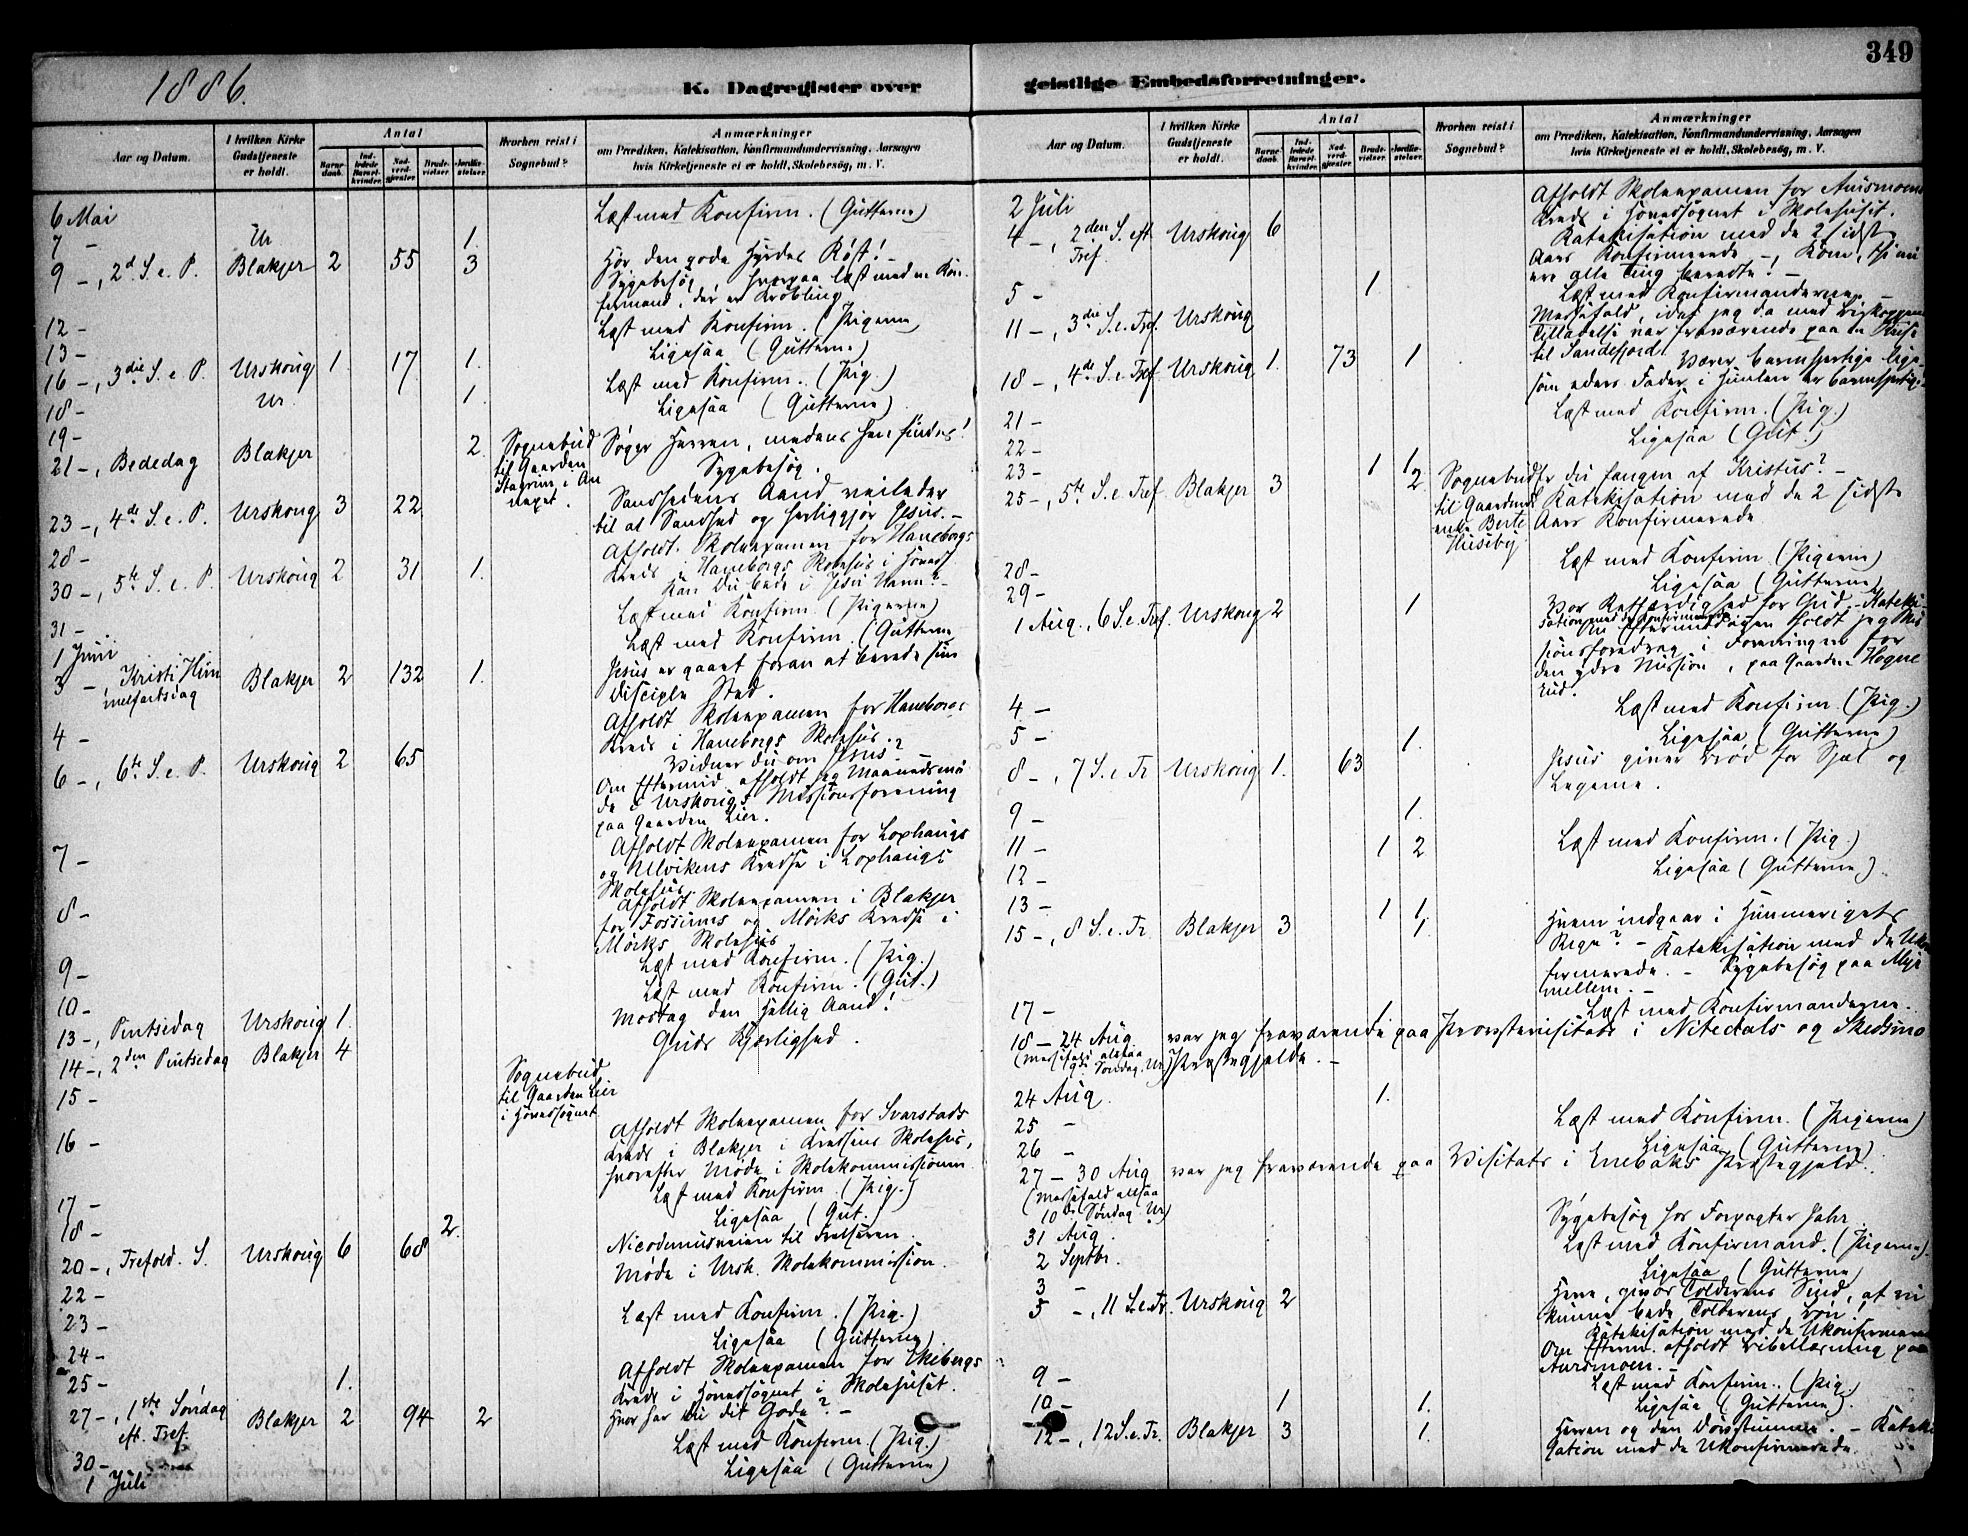 349
1886.
K. Dagregister over geistlige Embedsforretninger.
Aar og Datum.
I hvilken Kirke Gudstjeneste er holdt.
Antal
Barnedaab.
Indledede Barselkvinder.
Nadverdgjester.
Brudevielser.
Jordfæstelser.
Hvorhen reist i Sognebud?
Anmærkninger
om Prædiken, Katekisation, Konfirmandundervisning, Aarsagen
hvis Kirketjeneste ei er holdt, Skolebesøg, m. V.
6 Mai Læst med Konfirm. (Gutterne)
7 - Ur 1.
9 -, 2d S. e. P. Blakjer 2 55 3 Hør den gode Hyrdes Røst! -
Sygebesøg, hvorpaa læst med en Kon-
firmand, der er Krøbling
12 - Læst med Konfirm. (Pigerne
13 - Ligesaa (Gutterne)
16 -, 3die S. e P. Urskoug 1 17 1.
18 - Ur. 1. Læst med Konfirm. (Pig.)
19 - Ligesaa (Gutterne)
21 -, Bededag Blakjer 2. Sognebud
til Gaarden
i An
nexet.
Søger Herren, medens han findes!
Sygebesøg.
23 -, 4de S. e. P. Urskoug 3 22 Sandhedens Aand veileder
til al Sandhed og herliggjør Jesus. -
28 - Afholdt Skoleexamen for Haneborgs
Kreds i Haneborgs Skolehus i Hoveds.
30 -, 5te S. e. P Urskoug 2 31 1. Kan Du bede i Jesu Navn? -
31 - Læst med Konfirm. (Pigerne)
1 Juni Læst med Konfirm. (Gutterne
3 -, Kristi Him
melfartsdag Blakjer 2 132 1. Jesus er gaaet foran at berede sine
Disciple Sted.
4 - Afholdt Skoleexamen for Haneborgs
Kreds i Haneborgs Skolehus.
6 -, 6te S. e. P. Urskoug 2 65 Vidner du om Jesus? -
Om Eftermid. afholdt jeg Maanedsmø-
de i Urskougs Missionsforening
paa Gaarden Lier.
7 - Afholdt Skoleexamen for Lophaugs
og Ulvikens Kredse i Lophaugs
Skolehus.
8 - Afholdt Skoleexamen i Blakjer
for Fossums og Mørks Kredse i
Mørks Skolehus
9 - Læst med Konfirm. (Pig.)
10 - Læst med Konfirm. (Gut.)
13 -, Pintsedag Urskoug 1. Modtag den hellig Aand!
14 -, 2den Pintsedag Blakjer 4 Guds Kjærlighed.
15 - Sognebud
til Gaarden Lier
i Hovedsognet
16 - Afholdt Skoleexamen for Svarstads
Kreds i Blakjer i Kredsens Skolehus,
hvorefter Møde i Skolekommissionen
17 - Læst med Konfirm. (Pig.)
18 - 2. Ligesaa (Gut.)
20 -, Trefold. S. Urskoug 6 68 Nicodemusveien til Frelseren.
22 - Møde i Ursk. Skolekommission.
23 - Læst med Konfirm. (Pig.)
24 - Ligesaa (Gutterne)
25 - 1. Afholdt Skoleexamen for Ekebergs
Kreds i Hovedsognet i Skolehuset.
27 -, 1ste Søndag
eft. Tref. Blakjer 2 94 2 Hvor har du dit Gode? -
30 - Læst med Konfirm. (Pig.)
1 Juli Ligesaa (Gutterne)
Aar og Datum.
I hvilken Kirke Gudstjeneste er holdt.
Antal
Barnedaab.
Indledede Barselkvinder.
Nadverdgjester.
Brudevielser.
Jordfæstelser.
Hvorhen reist i Sognebud?
Anmærkninger
om Prædiken, Katekisation, Konfirmandundervisning, Aarsagen
hvis Kirketjeneste ei er holdt, Skolebesøg, m. V.
2 Juli Afholdt Skoleexamen for Aursmoens
Kreds i Hovedsognet i Skolehuset.
4 -, 2den S. eft
Tref. Urskoug 6 Katekisation med de 2 sidste
Aars Konfirmerede -, Kom, thi nu
ere alle Ting beredte! -
5 - 1 Læst med Konfirmanderne. -
11 -, 3die S. e. Tref. Urskoug Messefald, idet jeg da med Biskoppens
Tilladelse var fraværende paa en Reise
til Sandefjord.
18 -, 4de S. e. Tref Urskoug 1. 73 1 Værer barmhjertige lige-
som eders Fader i Himlen er barmhjertig.
21 - Læst med Konfirm. (Pig.)
22 - Ligesaa (Gut.)
23 - 1 1.
25 -, 5te S. e. Tref. Blakjer 3 2 Sognebud
til Gaardmands
enke Berte
Huseby
Er du fangen af Kristus? -
Katekisation med de 2 sidste
Aars Konfirmerede
28 - Læst med Konfirm (Pigerne)
29 - Ligesaa (Gutterne)
1 Aug., 6 S. e. Tref. Urskoug 2 1 Vor Retfærdighed for Gud. - Kateki-
sation med de Konfirmerede
Om Eftermiddagen holdt jeg Mis
sionsforedrag i Foreningen for
den ydre Mission, paa Gaarden Hogne
rud.
4 - Læst med Konfirm (Pig.)
5 - 1. Ligesaa (Gutterne)
8 -, 7 S. e Tr Urskoug 1. 63 Jesus giver Brød for Sjæl og
Legeme.
9 - 1.
11 - 1 2 Læst med Konfirm. (Pig.)
12 - Ligesaa (Gutterne).
13 - 1 1.
15 -, 8 S. e. Tr. Blakjer 3 1. Hvem indgaar i Himmeriges
Rige? - Katekisation med de Ukon
firmerede. - Sygebesøg paa
mellem. -
17 - 1 Læst med Konfirmanderne.
18 - 24 Aug var jeg fraværende paa Provstevisitats i Nitedals og Skedsmo
(Messefald altsaa
9de Søndag, Ur) Præstegjelde. -
24 Aug. 1.
25 - Læst med Konfirm. (Pigerne)
26 - Ligesaa (Gutterne)
27 - 30 Aug var jeg fraværende paa Visitats i Enebaks Præstegjeld.
(Messefald altsaa
10de Søndag Ur)
31 Aug. Sygebesøg hos Forpagter Jahr.
2 Septbr. Læst med Konfirmand. (Pigerne).
3 - Ligesaa (Gutterne)
5 -, 11 S. e. Tr. Urskoug 2 Herre, giv os Tolderens Sind, at vi
kunne bede Tolderens Bøn!
Katekisation med de Ukonfirmerede
Om Efterm. afholdt Bibellæsning paa
Aursmoen. -
9 - Læst med Konfirm. (Pig.)
10 - 1 1. Ligesaa (Gutterne).
12 -, 12 S. e. Tr. Blakjer 3 1. Herren og den Døvstumme. - Kateki
sation med de Ukonfirmerede